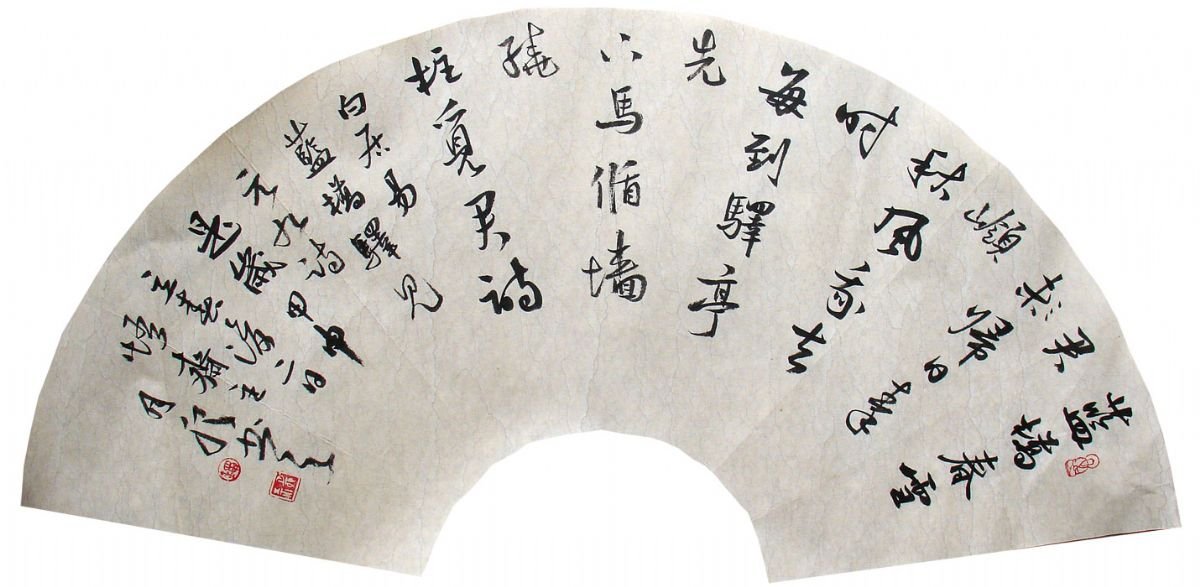 藍橋春雪
君
歸日秦
嶺
秋風我去
時
每到驛亭
先
下馬循墻
繞
柱覓君詩
白居易
藍橋驛見
元九詩
歲甲申